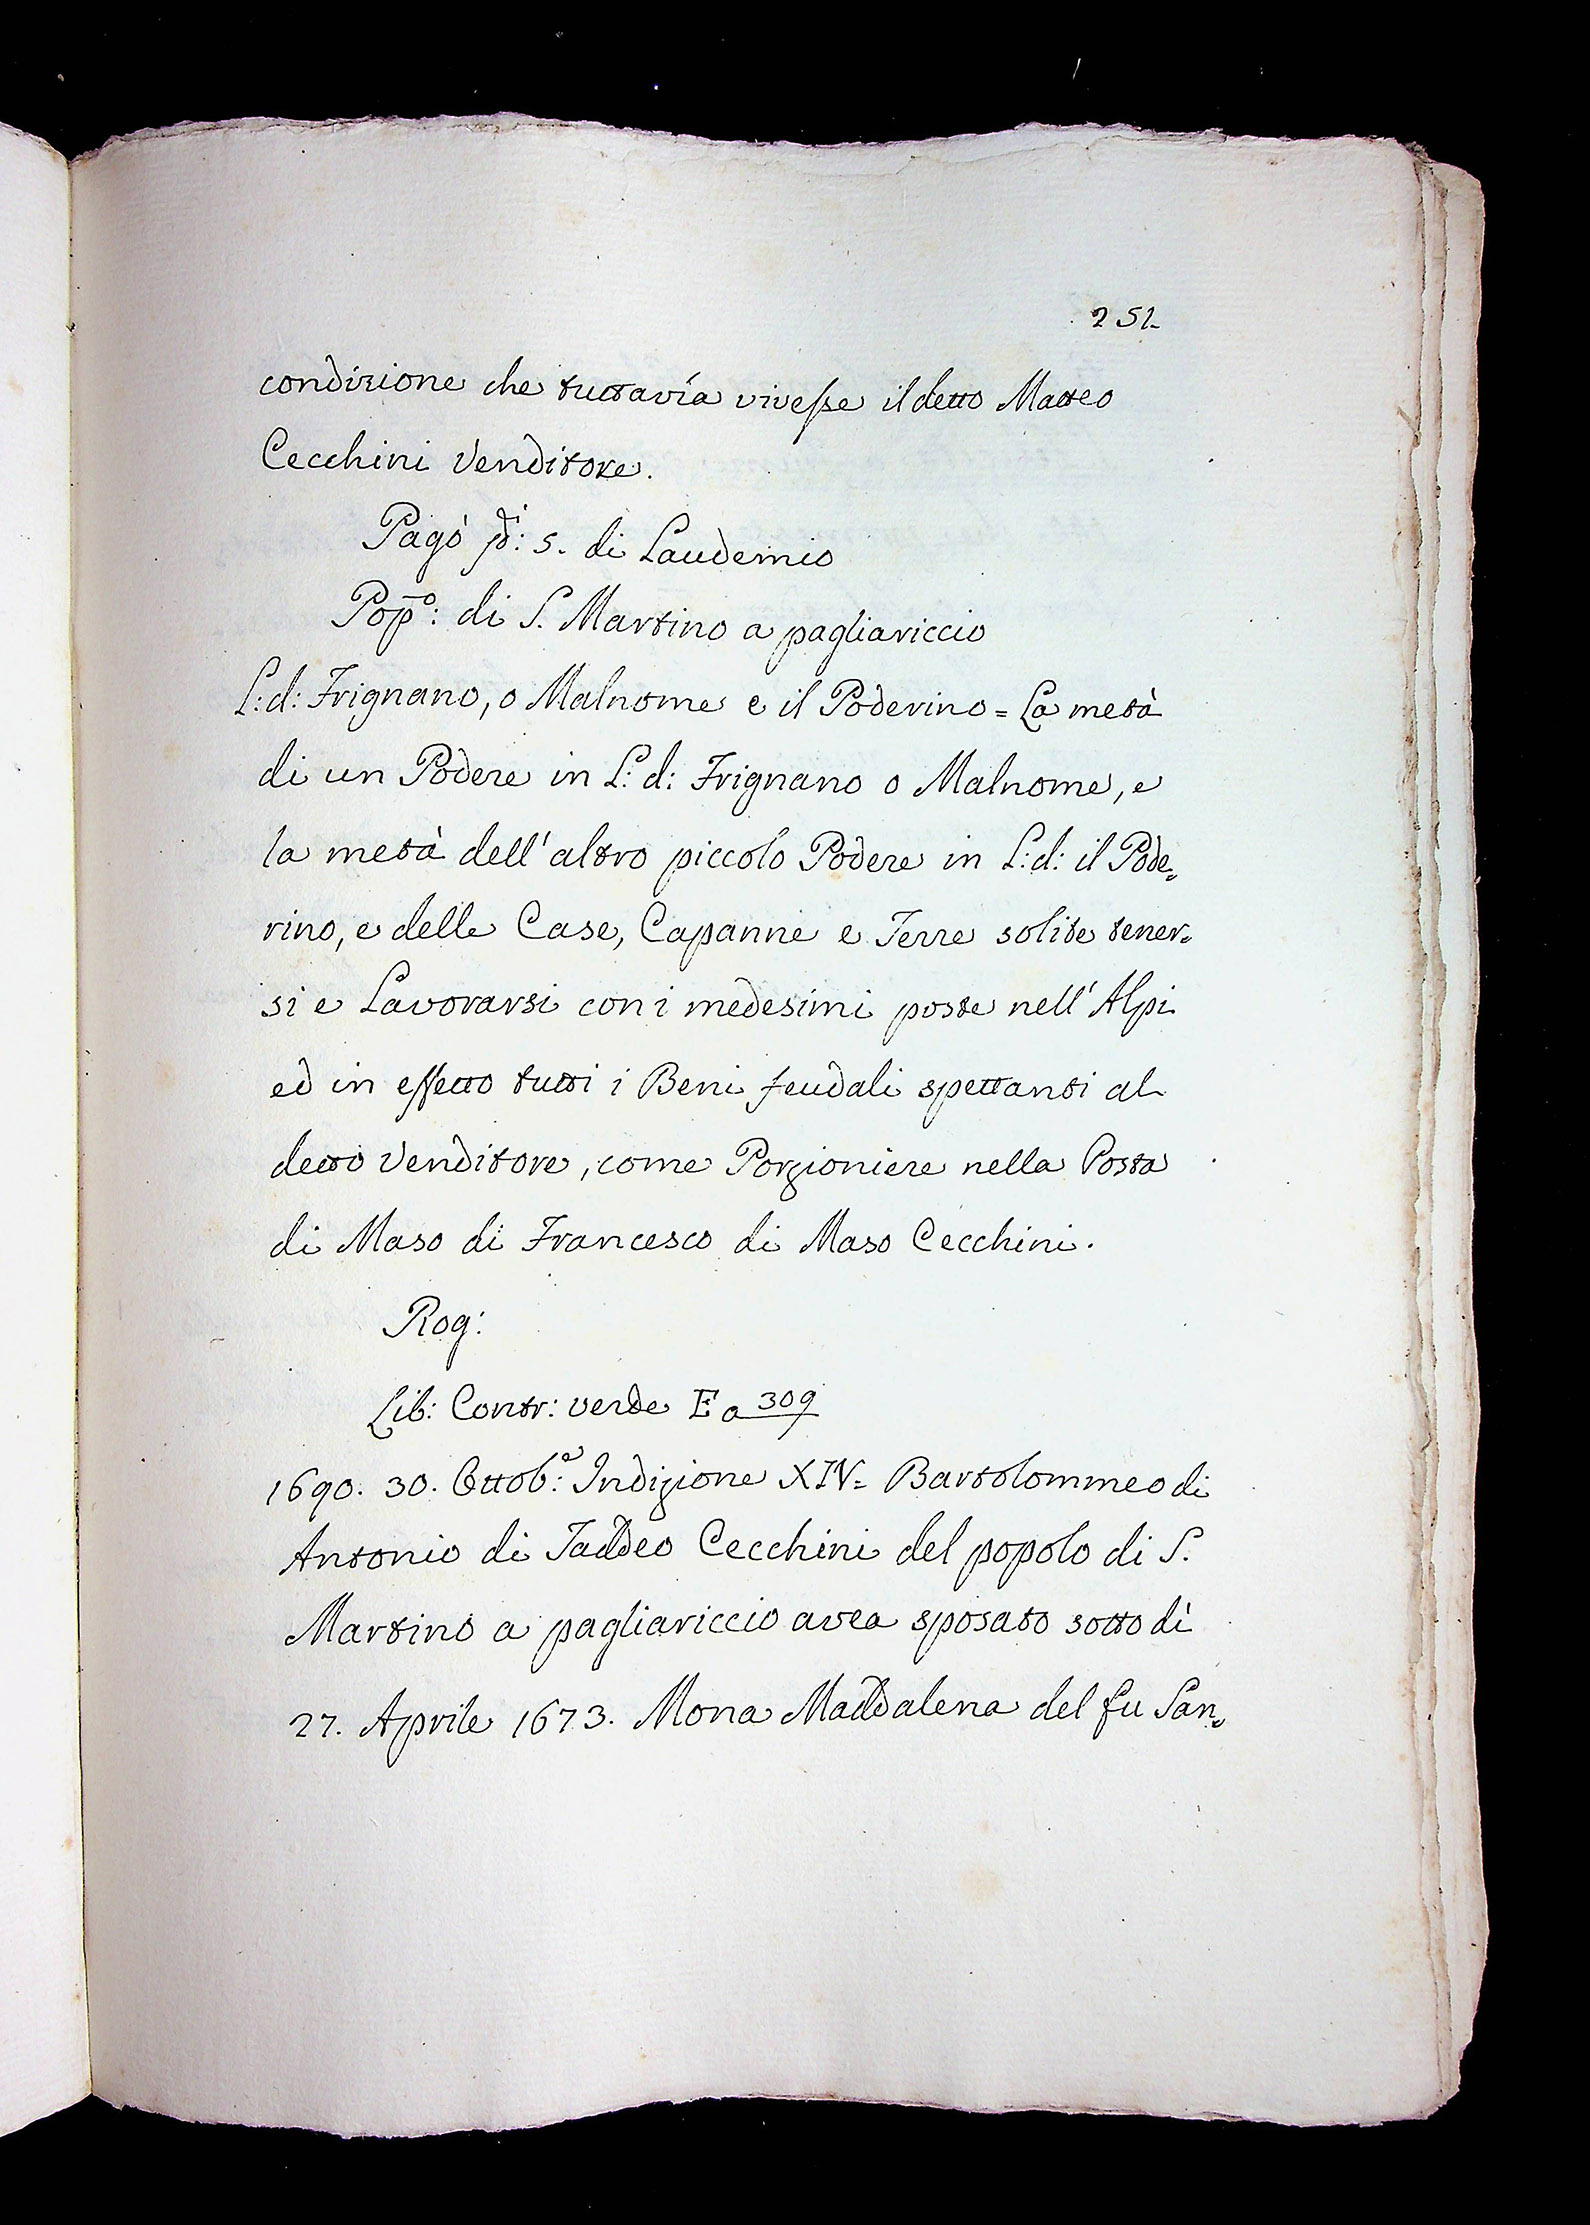 251.
condizione che tuttavía vivesse il detto Matteo
Cecchini Venditore.
Pagò : 5. di Laudemio
Pop̄º: di S. Martino a pagliariccio
L: d: Frignano, o Malnome e il Poderino = La metà
di un Podere in L: d: Frignano o Malnome, e
la metà dell'altro piccolo Podere in L: d: il Pode=
rino, e delle Case, Capanne e Terre solite tener=
si e Lavorarsi con i medesimi poste nell'Alpi
ed in effetto tutti i Beni feudali spettanti al
detto Venditore, come Porzioniere nella Posta
di Maso di Francesco di Maso Cecchini.
Rog:
Lib: Contr: verde E a 309
1690. 30. Ottobᵉ: Indizione XIV= Bartolommeo di
Antonio di Taddeo Cecchini del popolo di S.
Martino a pagliariccio avea sposato sotto dì
27. Aprile 1673. Mona Maddalena del fu San=